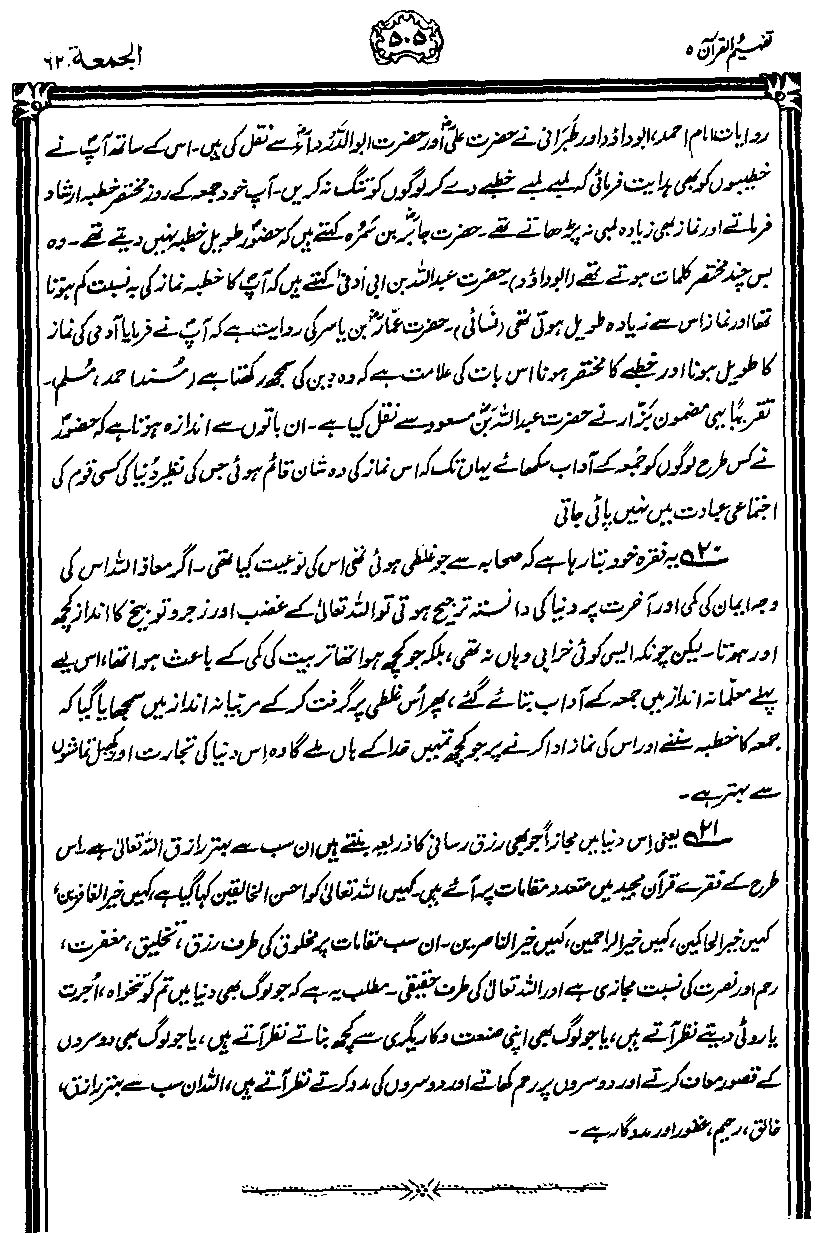 تفہیم القرآن ۵
۵۰۵
الجمعة ۶۲
روایات امام احمد، ابوداؤد اور طبرانی نے حضرت علیؓ اور حضرت ابوالدَّرداءؓ سے نقل کی ہیں۔ اس کے ساتھ آپؐ نے
خطیبوں کو بھی ہدایت فرمائی کہ لمبے لمبے خطبے دے کر لوگوں کو تنگ نہ کریں۔ آپ خود جمعہ کے روز مختصر خطبہ ارشاد
فرماتے اور نماز بھی زیادہ لمبی نہ پڑھاتے تھے۔ حضرت جابرؓ بن سَمُرہ کہتے ہیں کہ حضورؐ طویل خطبہ نہیں دیتے تھے۔ وہ
بس چند مختصر کلمات ہوتے تھے (ابوداؤد)۔ حضرت عبداللہ بن ابی اَوفیٰ کہتے ہیں کہ آپؐ کا خطبہ نماز کی بہ نسبت کم ہوتا
تھا اور نماز اس سے زیادہ طویل ہوتی تھی (نَسائی)۔ حضرت عمّارؓ بن یاسر کی روایت ہے کہ آپؐ نے فرمایا آدمی کی نماز
کا طویل ہونا اور خطبے کا مختصر ہونا اس بات کی علامت ہے کہ وہ دین کی سمجھ رکھتا ہے (مُسند احمد، مُسلم)۔
تقریباً یہی مضمون بَزّار نے حضرت عبداللہؓ بن مسعود سے نقل کیا ہے۔ ان باتوں سے اندازہ ہوتا ہے کہ حضورؐ
نے کس طرح لوگوں کو جُمعہ کے آداب سکھائے یہاں تک کہ اس نماز کی وہ شان قائم ہوئی جس کی نظیر دُنیا کی کسی قوم کی
اجتماعی عبادت میں نہیں پائی جاتی
۲۰ یہ فقرہ خود بتا رہا ہے کہ صحابہ سے جو غلطی ہوئی تھی اس کی نوعیت کیا تھی۔ اگر معاذ اللہ اس کی
وجہ ایمان کی کمی اور آخرت پر دنیا کی دانستہ ترجیح ہوتی تو اللہ تعالیٰ کے غضب اور زجر و توبیخ کا انداز کچھ
اور ہوتا۔ لیکن چونکہ ایسی کوئی خرابی وہاں نہ تھی، بلکہ جو کچھ ہوا تھا تربیت کی کمی کے باعث ہوا تھا، اس لیے
پہلے معلّمانہ انداز میں جمعہ کے آداب بتائے گئے، پھر اُس غلطی پر گرفت کر کے مربّیانہ انداز میں سمجھایا گیا کہ
جمعہ کا خطبہ سننے اور اس کی نماز ادا کرنے پر جو کچھ تمہیں خدا کے ہاں ملے گا وہ اِس دنیا کی تجارت اور کھیل تماشوں
سے بہتر ہے۔
۲۱ یعنی اِس دنیا میں مجازاً جو بھی رزق رسانی کا ذریعہ بنتے ہیں ان سب سے بہتر رازق اللہ تعالیٰ ہے۔ اس
طرح کے فقرے قرآن مجید میں متعدد مقامات پر آئے ہیں۔ کہیں اللہ تعالیٰ کو احسن الخالقین کہا گیا ہے، کہیں خیر الغافرین،
کہیں خیر الحاکمین، کہیں خیر الراحمین، کہیں خیر الناصرین۔ ان سب مقامات پر مخلوق کی طرف رزق، تخلیق، مغفرت،
رحم اور نصرت کی نسبت مجازی ہے اور اللہ تعالیٰ کی طرف حقیقی۔ مطلب یہ ہے کہ جو لوگ بھی دنیا میں تم کو تنخواہ، اُجرت
یا روٹی دیتے نظر آتے ہیں، یا جو لوگ بھی اپنی صنعت و کاریگری سے کچھ بناتے نظر آتے ہیں، یا جو لوگ بھی دوسروں
کے قصور معاف کرتے اور دوسروں پر رحم کھاتے اور دوسروں کی مدد کرتے نظر آتے ہیں، اللہ ان سب سے بہتر رازق،
خالق، رحیم، غفور اور مددگار ہے۔